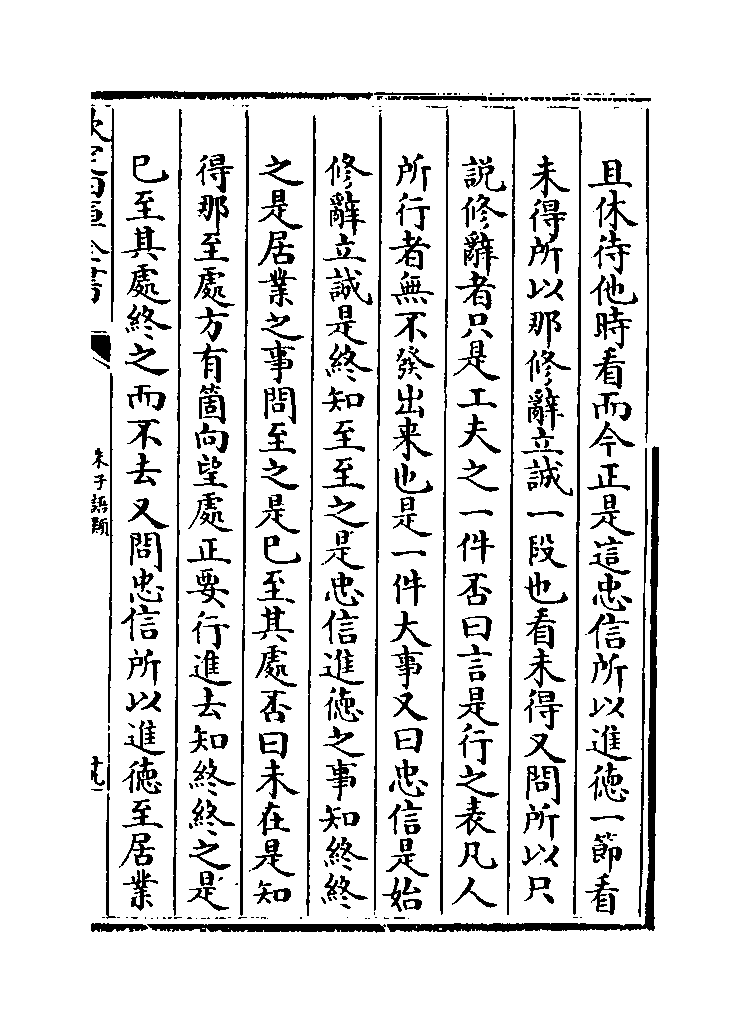 且休待他時看而今正是這忠信所以進徳一節看
未得所以那修辭立誠一段也看未得又問所以只
說修辭者只是工夫之一件否曰言是行之表凡人
所行者無不發出来也是一件大事又曰忠信是始
修辭立誠是終知至至之是忠信進徳之事知終終
之是居業之事問至之是已至其處否曰未在是知
得那至處方有箇向望處正要行進去知終終之是
已至其處終之而不去又問忠信所以進徳至居業
朱子語類